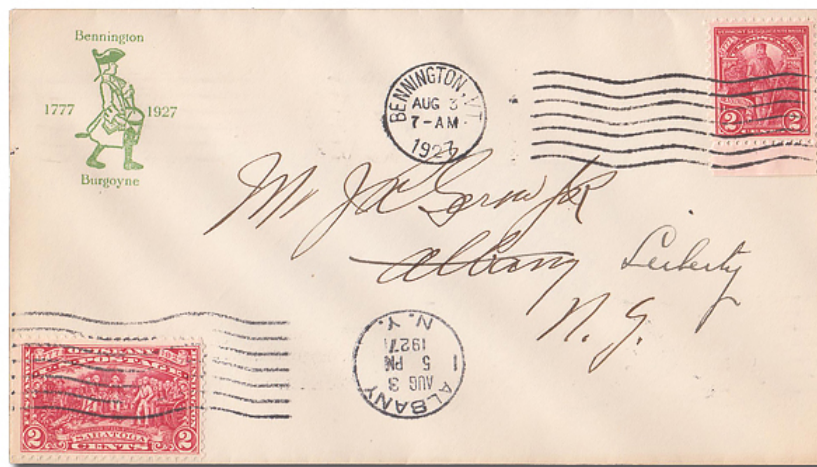 Bennington
1777 1927
Burgoyne
BENNINGTON, VT.
AUG 3
7-AM
1927
VERMONT SESQUICENTENNIAL
U.S. POSTAGE
2 CENTS 2
Mr
Jr
Albany Liberty
N.Y.
ALBANY
1
AUG 3
5 PM
1927
N.Y.
U.S. POSTAGE
SARATOGA
2 CENTS 2